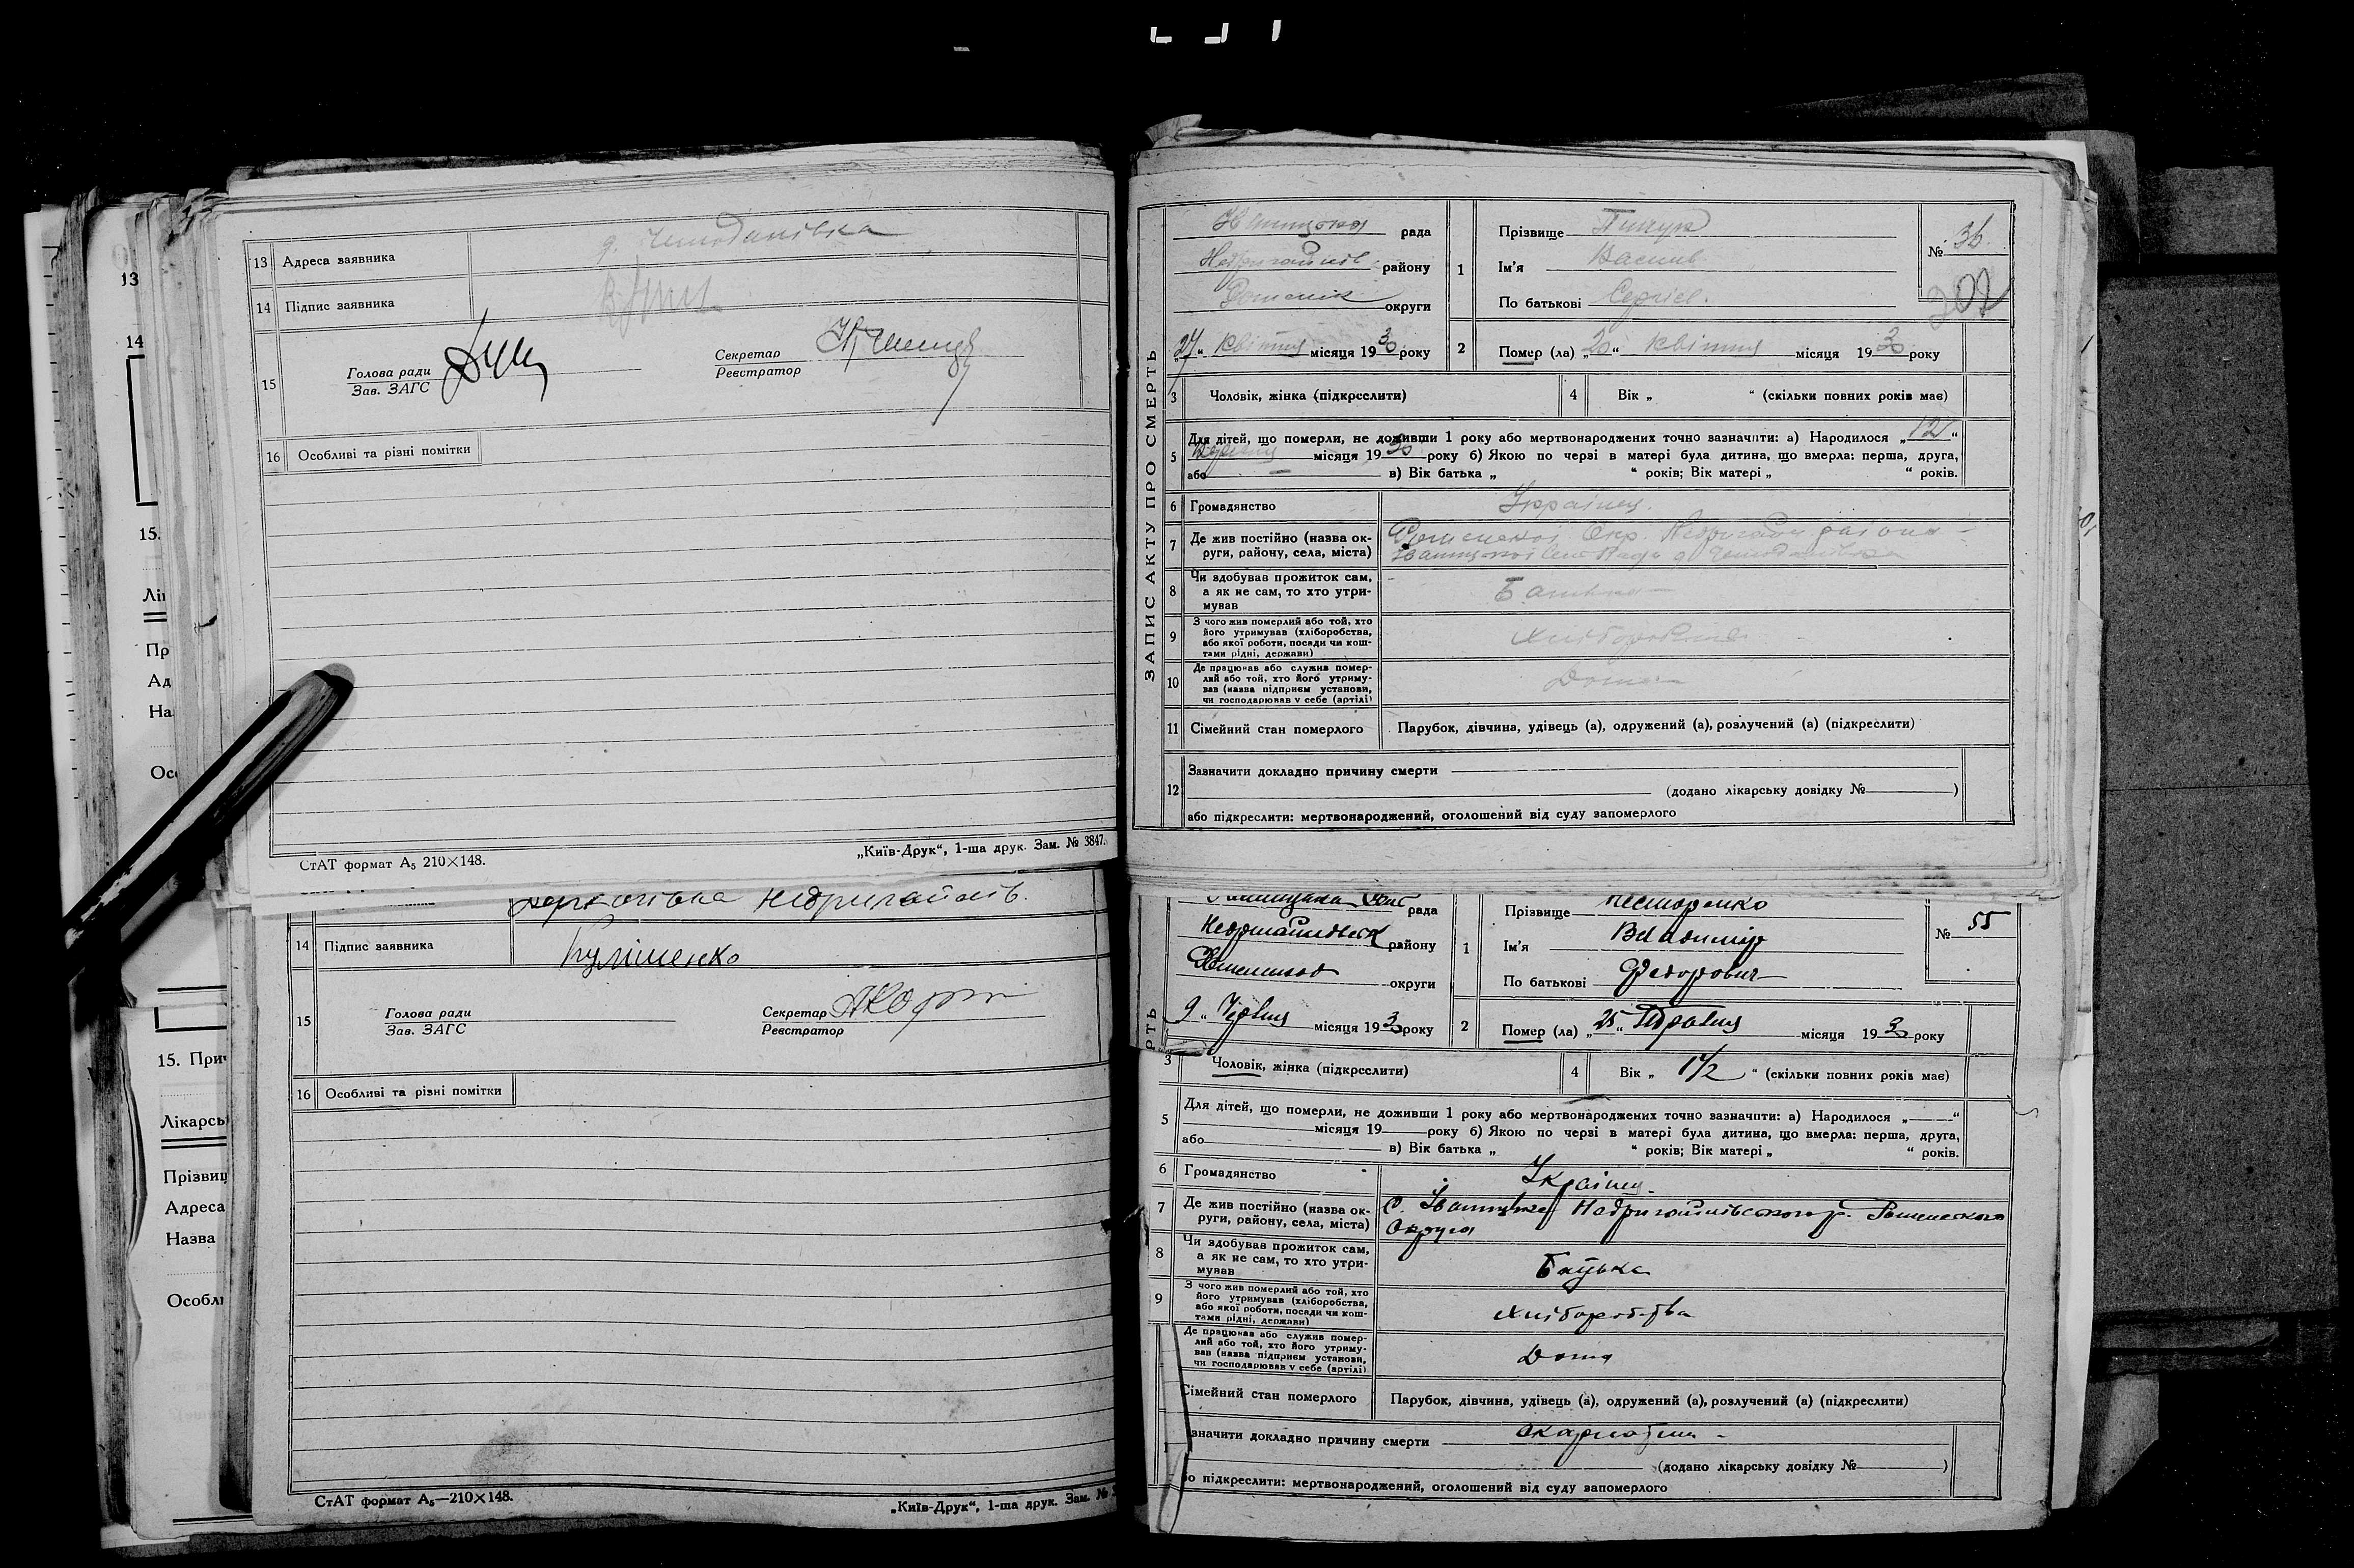 13
14
15.
Лі
Пр
Ад
На
Ос
15. При
Лікарсь
Прізвищ
Адреса
Назва
Особл
13 Адреса заявника
14 Підпис заявника
15 Голова ради
Зав. ЗАГС
Секретар
Реєстратор
16 Особливі та різні помітки
СтАТ формат А₅ 210×148.
„Київ-Друк“, 1-ша друк. Зам. № 3847.
Недригайлів.
14 Підпис заявника Куліменко
15 Голова ради
Зав. ЗАГС
Секретар
Реєстратор
16 Особливі та різні помітки
СтАТ формат А₅—210×148.
„Київ-Друк“, 1-ша друк. Зам. №
ЗАПИС АКТУ ПРО СМЕРТЬ
рада
району
округи
„27“ Квітня місяця 1930 року
1 Прізвище
Ім'я Васил
По батькові Сергієв.
№ 36.
202
2 Помер (ла) „20“ Квітня місяця 1930 року
3 Чоловік, жінка (підкреслити)
4 Вік „ “ (скільки повних років має)
5 Для дітей, що померли, не доживши 1 року або мертвонароджених точно зазначити: а) Народилося „12“
місяця 1930 року б) Якою по черзі в матері була дитина, що вмерла: перша, друга,
або в) Вік батька „ “ років; Вік матері „ “ років.
6 Громадянство Українец.
7 Де жив постійно (назва ок-
руги, району, села, міста)
8 Чи здобував прожиток сам,
а як не сам, то хто утри-
мував
Батько
9 З чого жив померлий або той, хто
його утримував (хліборобства,
або якої роботи, посади чи кош-
тами рідні, держави)
10 Де працював або служив помер-
лий або той, хто його утриму-
вав (назва підприєм установи,
чи господарював у себе (артілі)
Дома
11 Сімейний стан померлого Парубок, дівчина, удівець (а), одружений (а), розлучений (а) (підкреслити)
12 Зазначити докладно причину смерти
(додано лікарську довідку № )
або підкреслити: мертвонароджений, оголошений від суду запомерлого
РТЬ
рада
району
округи
9 „ Червня місяця 1930 року
1 Прізвище Нестеренко
Ім'я Владимір
По батькові Федорович
№ 55
2 Помер (ла) „25“ Травня місяця 1930 року
3 Чоловік, жінка (підкреслити)
4 Вік „ 1 1/2 “ (скільки повних років має)
5 Для дітей, що померли, не доживши 1 року або мертвонароджених точно зазначити: а) Народилося „ “
місяця 19 року б) Якою по черзі в матері була дитина, що вмерла: перша, друга,
або в) Вік батька „ “ років; Вік матері „ “ років.
6 Громадянство Українец.
7 Де жив постійно (назва ок-
руги, району, села, міста)
Округа
8 Чи здобував прожиток сам,
а як не сам, то хто утри-
мував
Батька
9 З чого жив померлий або той, хто
його утримував (хліборобства,
або якої роботи, посади чи кош-
тами рідні, держави)
Хліборобства
Де працював або служив помер-
лий або той, хто його утриму-
вав (назва підприєм установи,
чи господарював у себе (артілі)
Дома
Сімейний стан померлого Парубок, дівчина, удівець (а), одружений (а), розлучений (а) (підкреслити)
значити докладно причину смерти Скарлатина
(додано лікарську довідку № )
бо підкреслити: мертвонароджений, оголошений від суду запомерлого